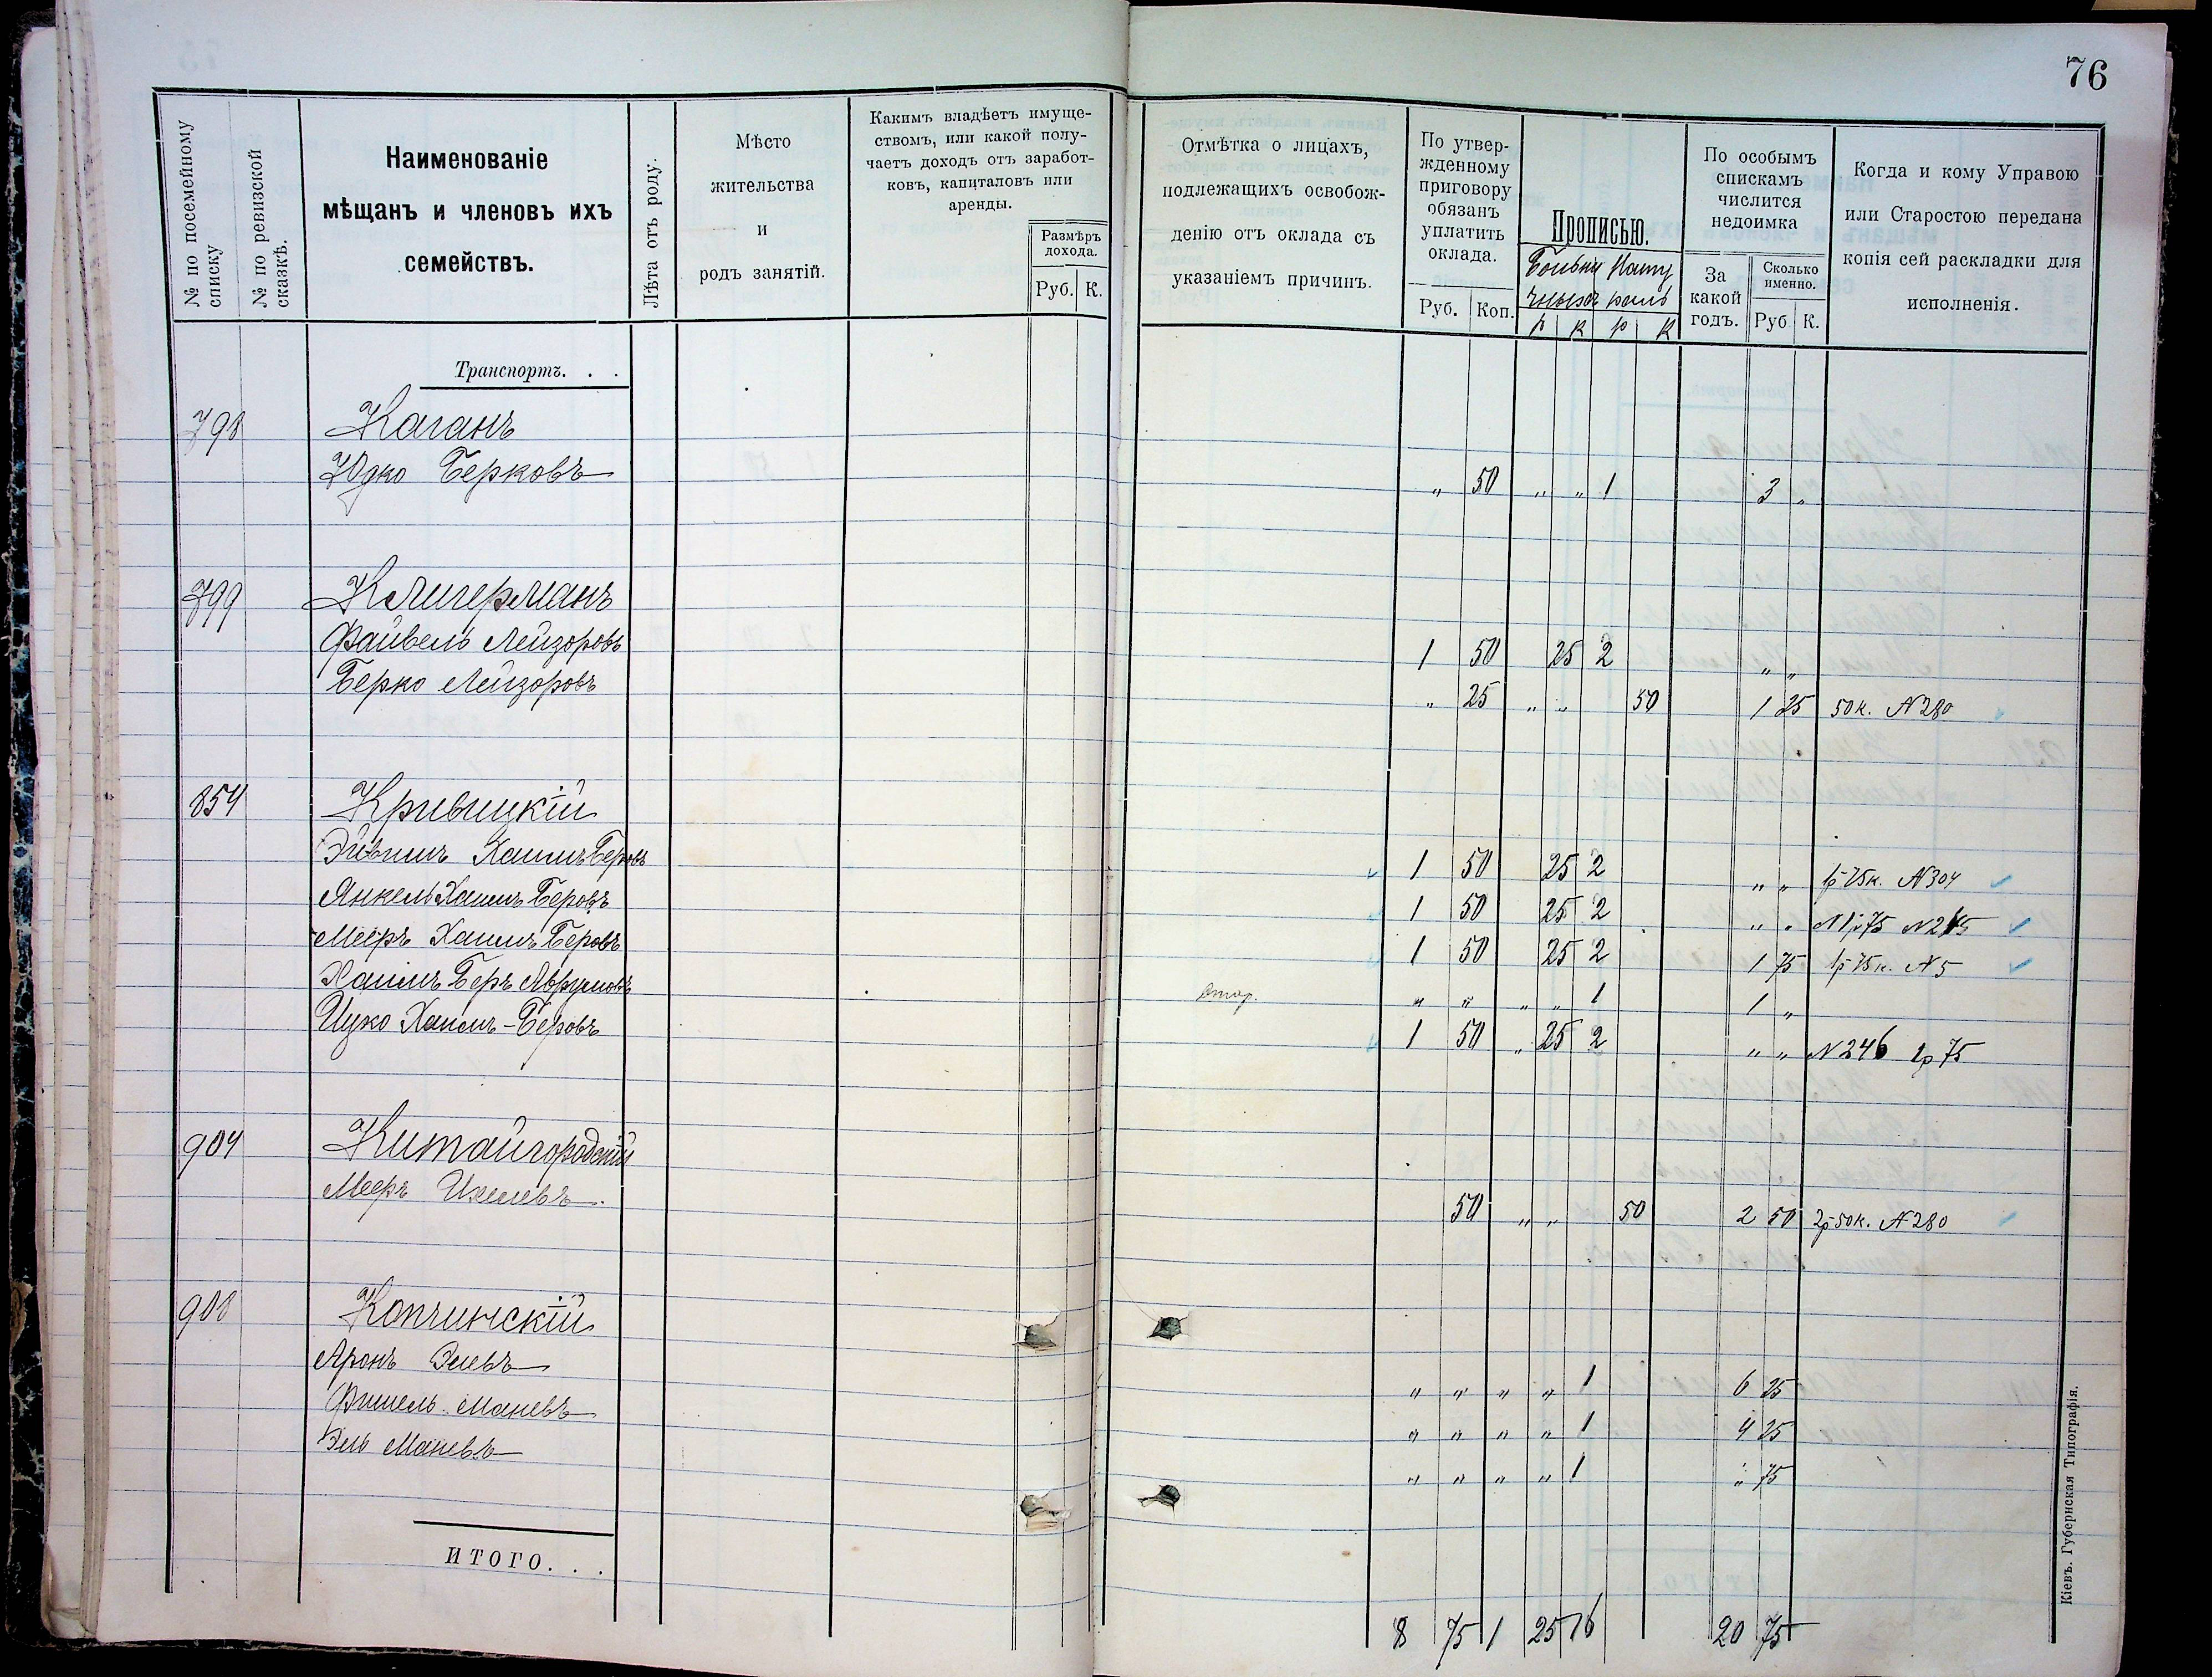 76
№ по посемейному списку
№ по ревизской сказкѣ.
Наименованіе
мѣщанъ и членовъ ихъ
семействъ.
Лѣта отъ роду.
Мѣсто
жительства
и
родъ занятій.
Какимъ владѣетъ имуще-
ствомъ, или какой полу-
чаетъ доходъ отъ заработ-
ковъ, капиталовъ или
аренды.
Размѣръ
дохода.
Руб. К.
Отмѣтка о лицахъ,
подлежащихъ освобож-
денію отъ оклада съ
указаніемъ причинъ.
По утвер-
жденному
приговору
обязанъ
уплатить
оклада.
Руб. Коп.
Прописью.
р к р к
По особымъ
спискамъ
числится
недоимка
За
какой
годъ.
Сколько
именно.
Руб К.
Когда и кому Управою
или Старостою передана
копія сей раскладки для
исполненія.
Транспортъ. . .
798 Каганъ
Юдко Берковъ „ 50 „ „ 1 3 „
799 Клигерманъ
Файвель Лейзоровъ 1 50 25 2 „ „
Берко Лейзоровъ „ 25 „ „ 50 1 25 50к. №280
854 Кривицкій
Хаимъ Беровъ 1 50 25 2 „ „ 1р 75к. №304
Янкель Хаимъ Беровъ 1 50 25 2 „ „ 1р75
Мееръ Хаимъ Беровъ 1 50 25 2 1 75 1р 75к. №5
Хаимъ Беръ Аврумовъ „ „ „ „ 1 1 „
Ицко Хаимъ-Беровъ 1 50 „ 25 2 „ „ №246 1р 75
904 Китайгородскій
Мееръ 50 „ „ 50 2 50 2р 50к. №280
908 Копчинскій
Аронъ Элевъ „ „ „ „ 1 6 25
Фишель Маневъ „ „ „ „ 1 4 25
Эль Маневъ „ „ „ „ 1 „ 75
ИТОГО. . .
8 75 1 25 16 20 75
Кіевъ. Губернская Типографія.